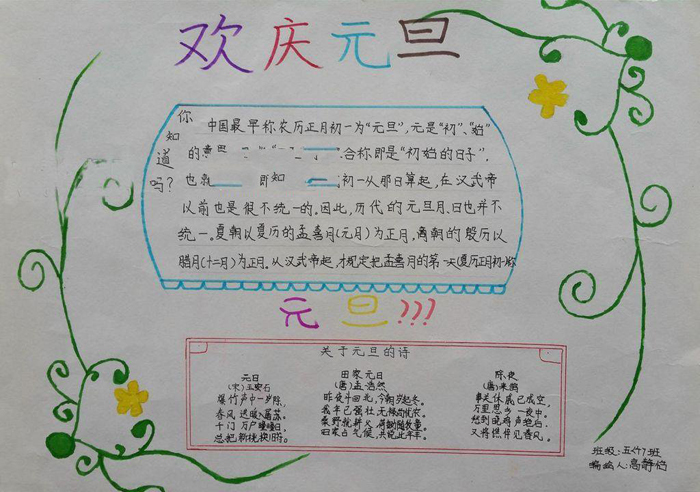 欢庆元旦
你知道吗?
中国最早称农历正月初一为"元旦",元是"初"、"始"
的意思 合称即是"初始的日子".
也就 即知 初一从那日算起,在汉武帝
以前也是很不统一的。因此,历代的元旦月、日也并不
统一。夏朝以夏历的孟喜月(元月)为正月,商朝的殷历以
腊月(十二月)为正月。从汉武帝起,才规定把孟喜月的第一天(夏历正月初一)称
元旦???
关于元旦的诗
元日
(宋)王安石
爆竹声中一岁除,
春风送暖入屠苏。
千门万户曈曈日,
总把新桃换旧符。
田家元日
(唐)孟浩然
昨夜斗回北,今朝岁起东。
我年已强壮,无禄尚忧农。
桑野就耕父,荷锄随牧童。
田家占气候,共说此年丰。
除夜
(唐)来鹄
事关休戚已成空,
万里思乡一夜中。
愁到晓鸡声绝后,
又将憔悴见春风。
班级:五(7)班
编绘人:高静